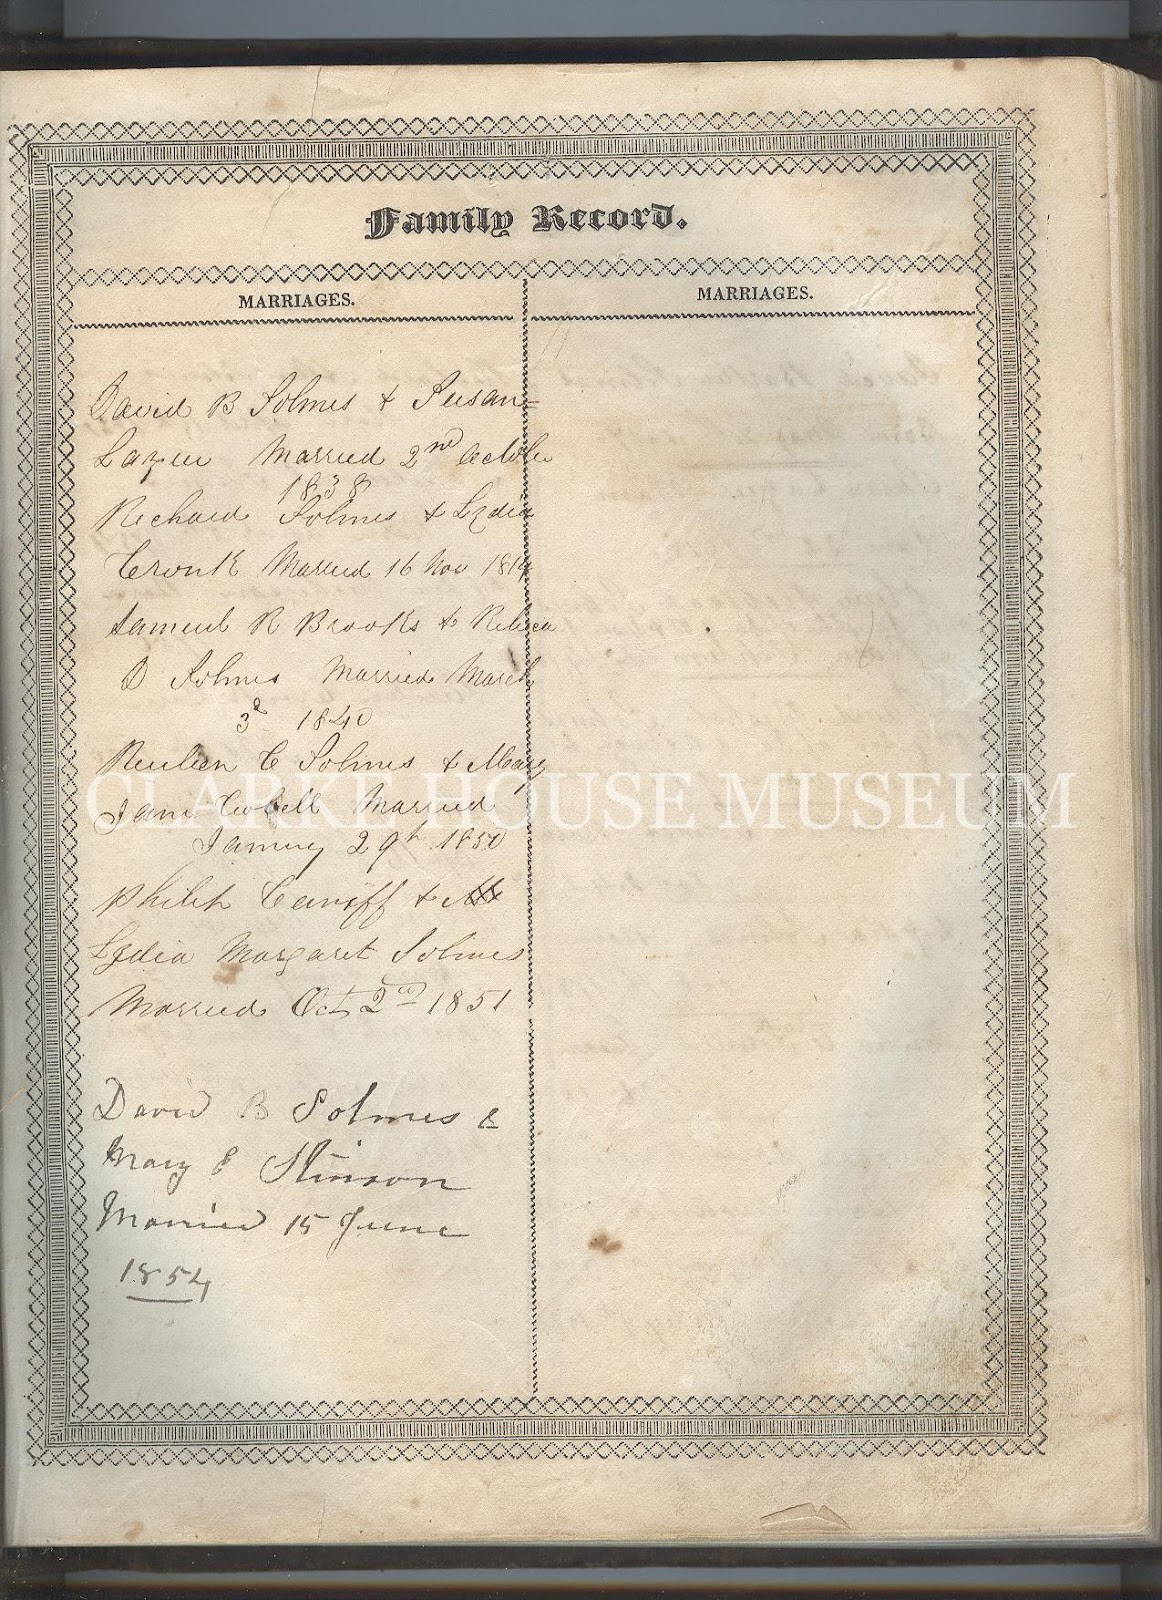 Family Record.
MARRIAGES.
David B Solmes & Susan=
Lazier Married 2nd October
1838
Richard Solmes & Lydia
Cronk Married 16 Nov 1814
Samuel R Brooks & Rebeca
D Solmes Married March
3d 1840
Reuben C Solmes & Mary
Jane Married
January 29th 1850
Philip Caniff &
Lydia Margaret Solmes
Married Oct 2nd 1851
David B Solmes &
Mary E Stinson
Married 15 June
1854
MARRIAGES.
CLARKE HOUSE MUSEUM